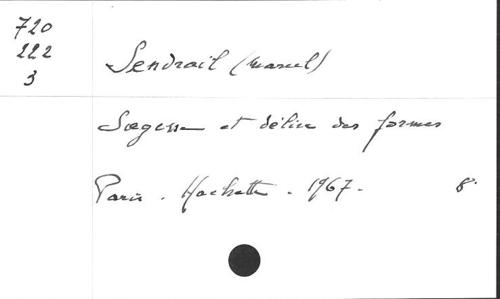 720
222
3
Sendrail (Marcel)
Sagesse et délire des formes
Paris . Hachette . 1967 .
8°